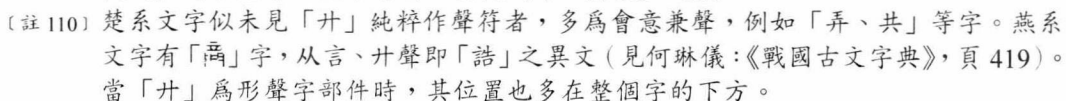 〔註110〕楚系文字似未見「廾」純粹作聲符者,多爲會意兼聲,例如「弄、共」等字。燕系
文字有「」字,从言、廾聲即「誥」之異文(見何琳儀:《戰國古文字典》,頁 419)。
當「廾」爲形聲字部件時,其位置也多在整個字的下方。